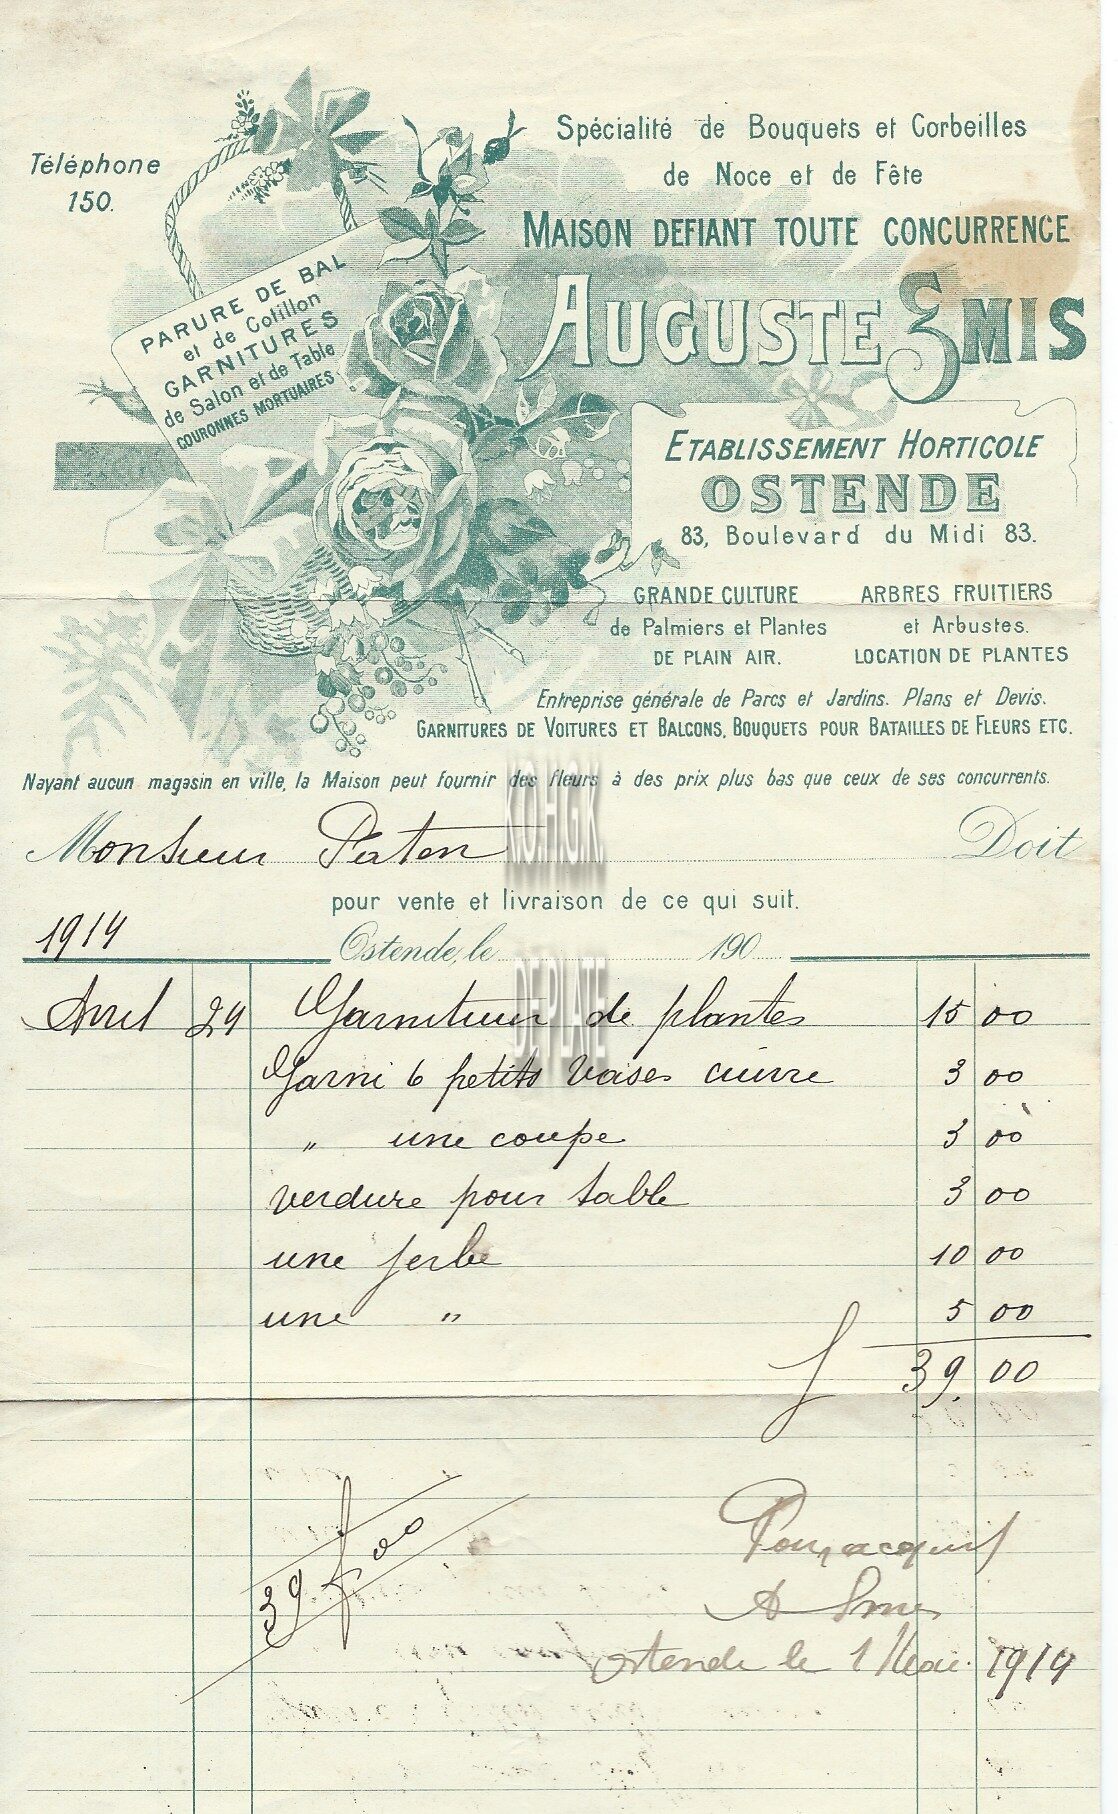 Téléphone
150.
Spécialité de Bouquets et Corbeilles
de Noce et de Fête
MAISON DEFIANT TOUTE CONCURRENCE
AUGUSTE SMIS
PARURE DE BAL
et de Cotillon
GARNITURES
de Salon et de Table
COURONNES MORTUAIRES
ETABLISSEMENT HORTICOLE
OSTENDE
83, Boulevard du Midi 83.
GRANDE CULTURE
de Palmiers et Plantes
DE PLAIN AIR.
ARBRES FRUITIERS
et Arbustes.
LOCATION DE PLANTES
Entreprise générale de Parcs et Jardins. Plans et Devis.
GARNITURES DE VOITURES ET BALCONS, BOUQUETS POUR BATAILLES DE FLEURS ETC.
Nayant aucun magasin en ville, la Maison peut fournir des fleurs à des prix plus bas que ceux de ses concurrents.
Monsieur Doit
pour vente et livraison de ce qui suit.
1914 Ostende, le 190
Avril 24 Garniture de plantes 15 00
Garni 6 petits vases cuivre 3 00
" une coupe 3 00
verdure pour table 3 00
une jerbe 10 00
une " 5 00
f 39.00
39 f 00
Pour acquit
A Smis
ostende le 1 Mai 1914
KO.H.G.K.
DE PLATE